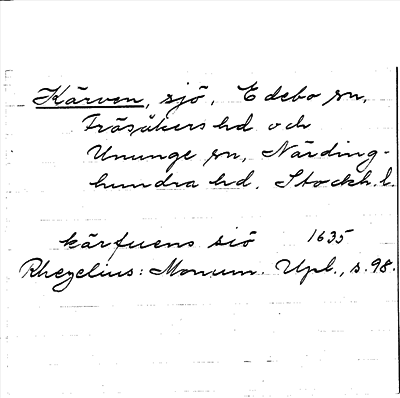 Kärven, sjö, Edebo sn,
Frösåkers hd och
Ununge sn, Närding-
hundra hd. Stockh. l.
kärfuens siö 1635
Rhezelius: Monum. Upl., s. 98.